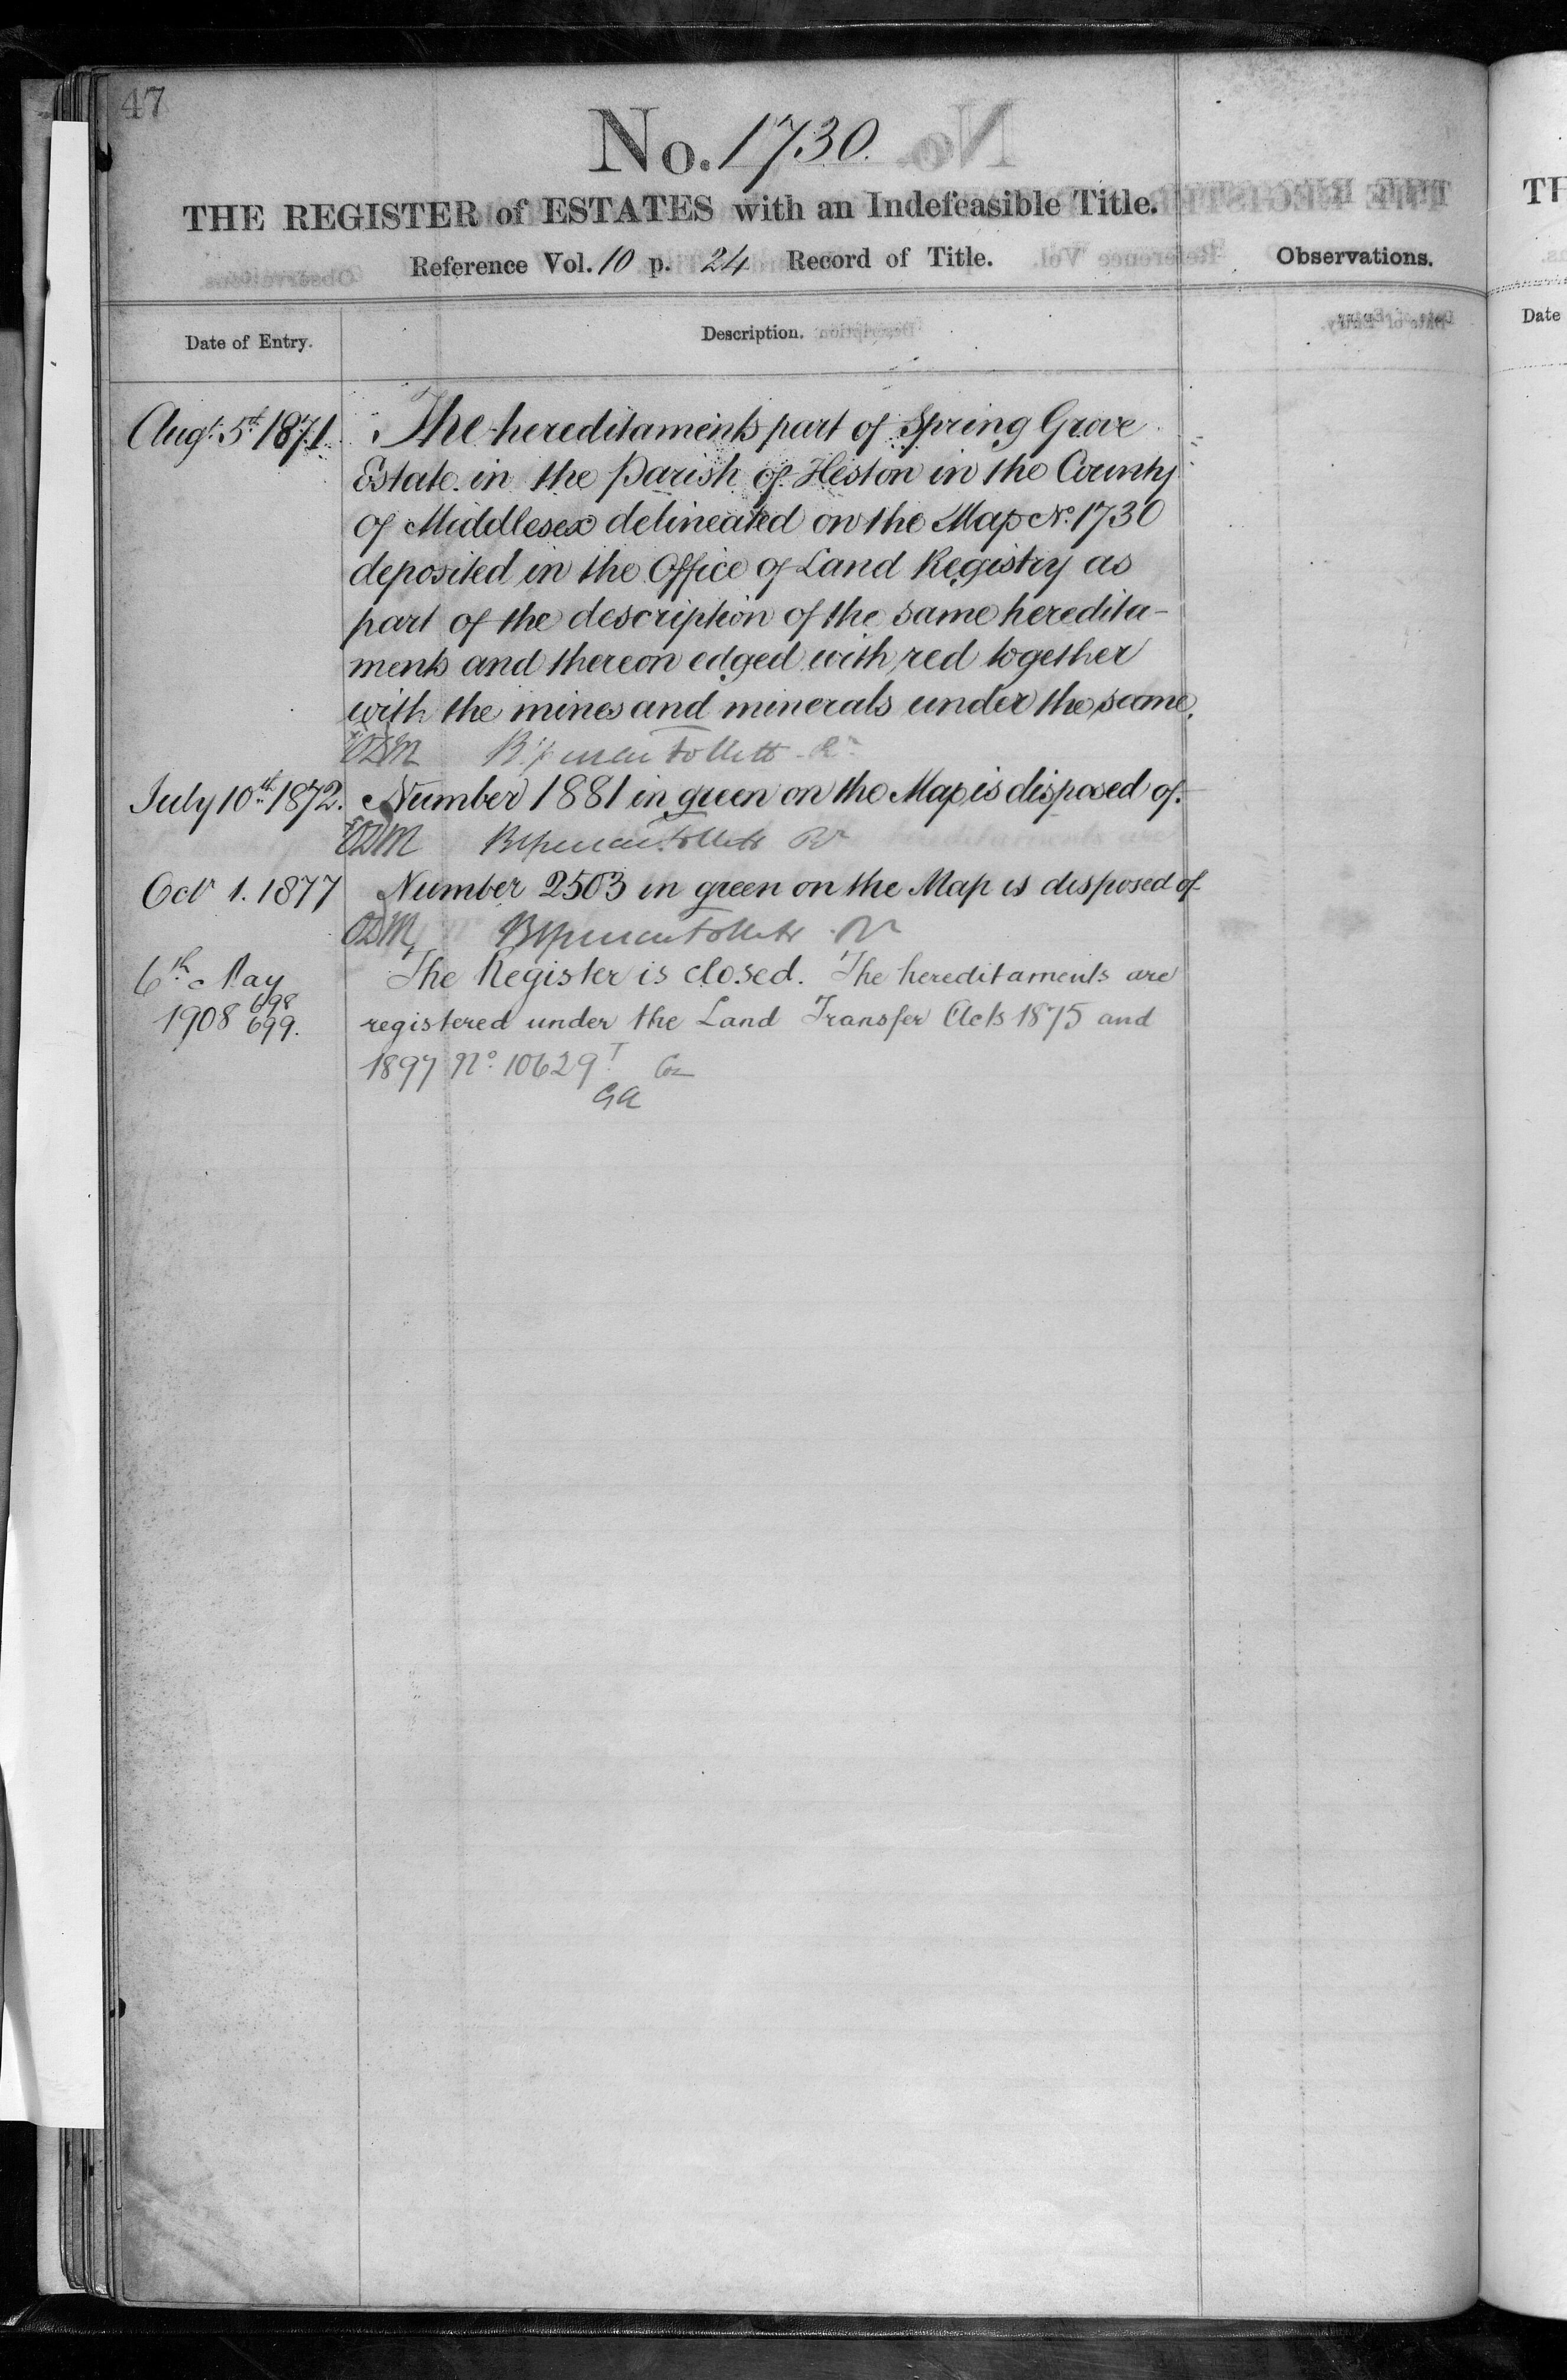 47
No. 1730.
THE REGISTER of ESTATES with an Indefeasible Title.
Reference Vol. 10 p. 24 Record of Title.
Observations.
Date of Entry.
Description.
Augt. 5th 1871. The hereditaments part of Spring Grove
Estate in the Parish of Heston in the County
of Middlesex delineated on the Map No. 1730
deposited in the Office of Land Registry as
part of the description of the same heredita-
ments and thereon edged with red together
with the mines and minerals under the same.
July 10th. 1872. Number 1881 in green on the Map is disposed of.
Octr 1. 1877 Number 2503 in green on the Map is disposed of
6th May The Register is closed. The hereditaments are
1908 698 699. registered under the Land Transfer Acts 1875 and
1897 No. 10629T
GA
TH
Date